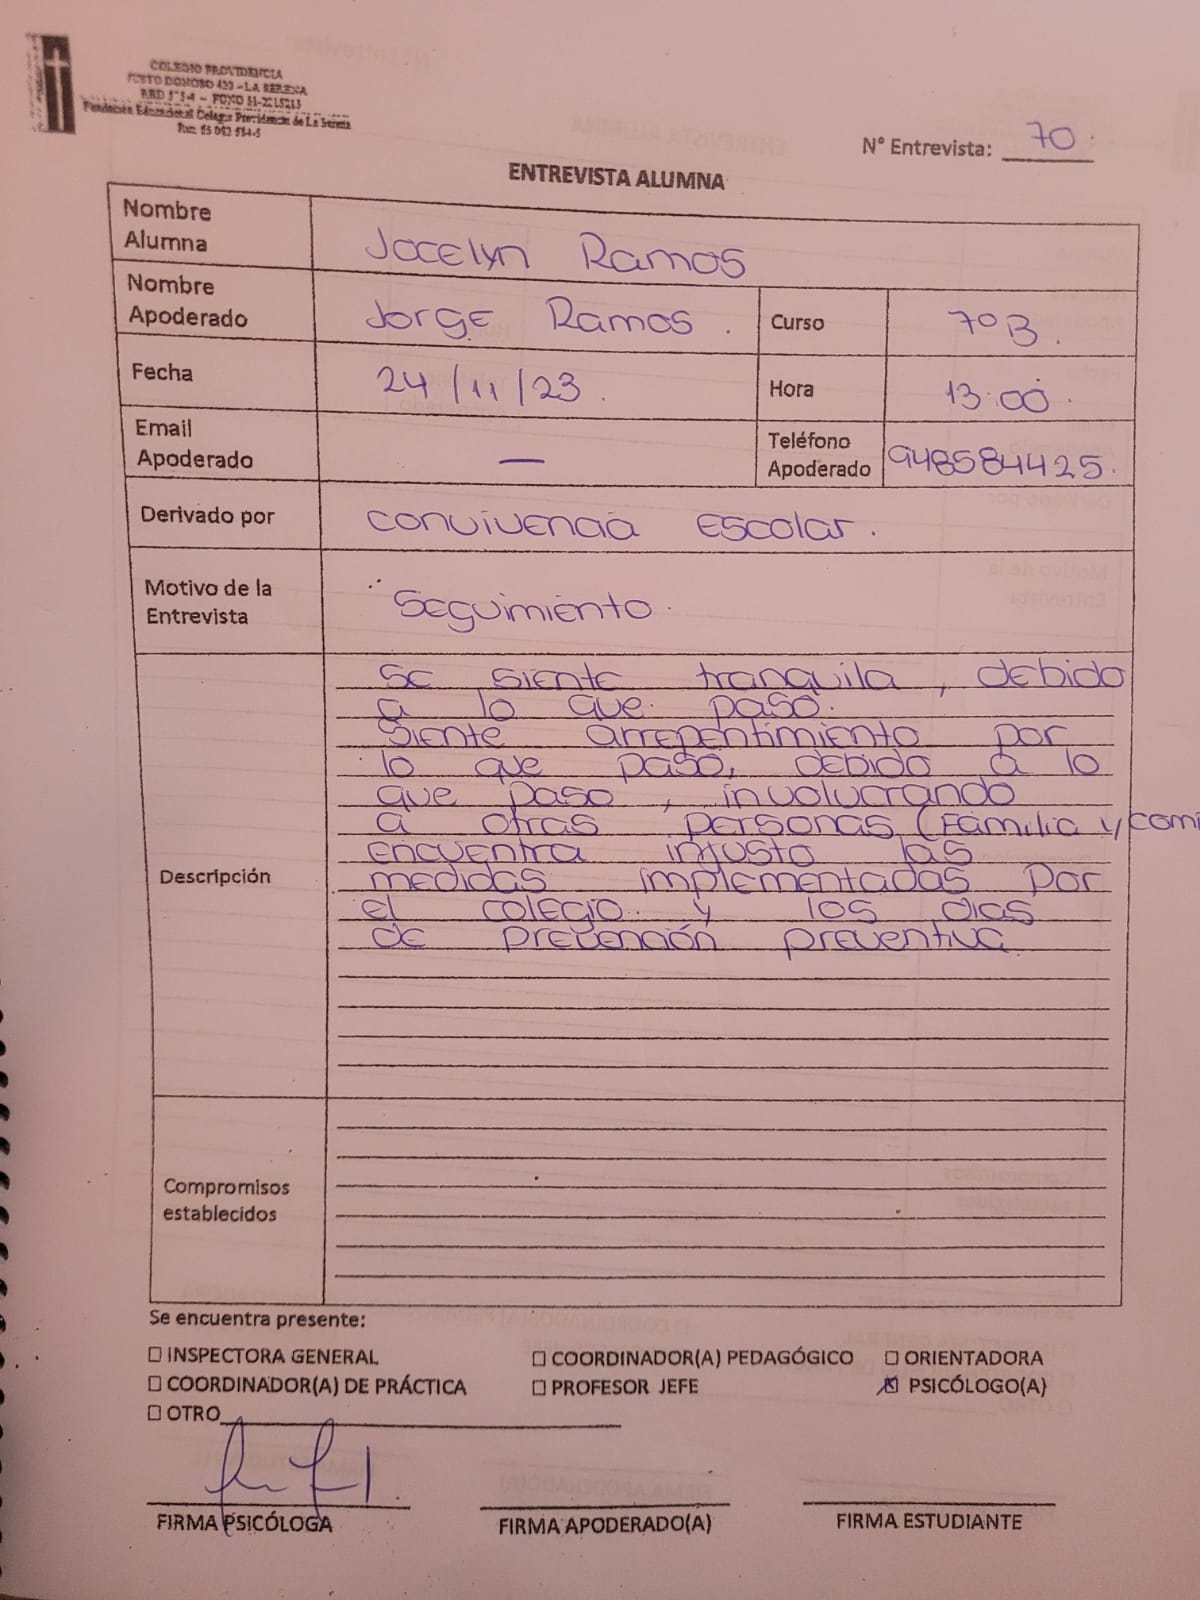 COLEGIO PROVIDENCIA
JUSTO DONOSO 420 - LA SERENA
Fundación Educacional Colegio Providencia de La Serena
N° Entrevista: 70.
ENTREVISTA ALUMNA
Nombre Alumna
Jocelyn Ramos
Nombre Apoderado
Jorge Ramos.
Curso
7º B.
Fecha
24/11/23.
Hora
13:00.
Email Apoderado
—
Teléfono Apoderado
948584425.
Derivado por
convivencia Escolar.
Motivo de la Entrevista
Seguimiento.
Descripción
Se siente tranquila, debido
a lo que pasó.
Siente arrepentimiento por
lo que paso, debido a lo
que paso, involucrando
a otras personas (Familia y com
encuentra injusto las
medidas implementadas por
el colegio y los dias
de prevención preventiva.
Compromisos establecidos
Se encuentra presente:
☐ INSPECTORA GENERAL ☐ COORDINADOR(A) PEDAGÓGICO ☐ ORIENTADORA
☐ COORDINADOR(A) DE PRÁCTICA ☐ PROFESOR JEFE ☒ PSICÓLOGO(A)
☐ OTRO
FIRMA PSICÓLOGA FIRMA APODERADO(A) FIRMA ESTUDIANTE